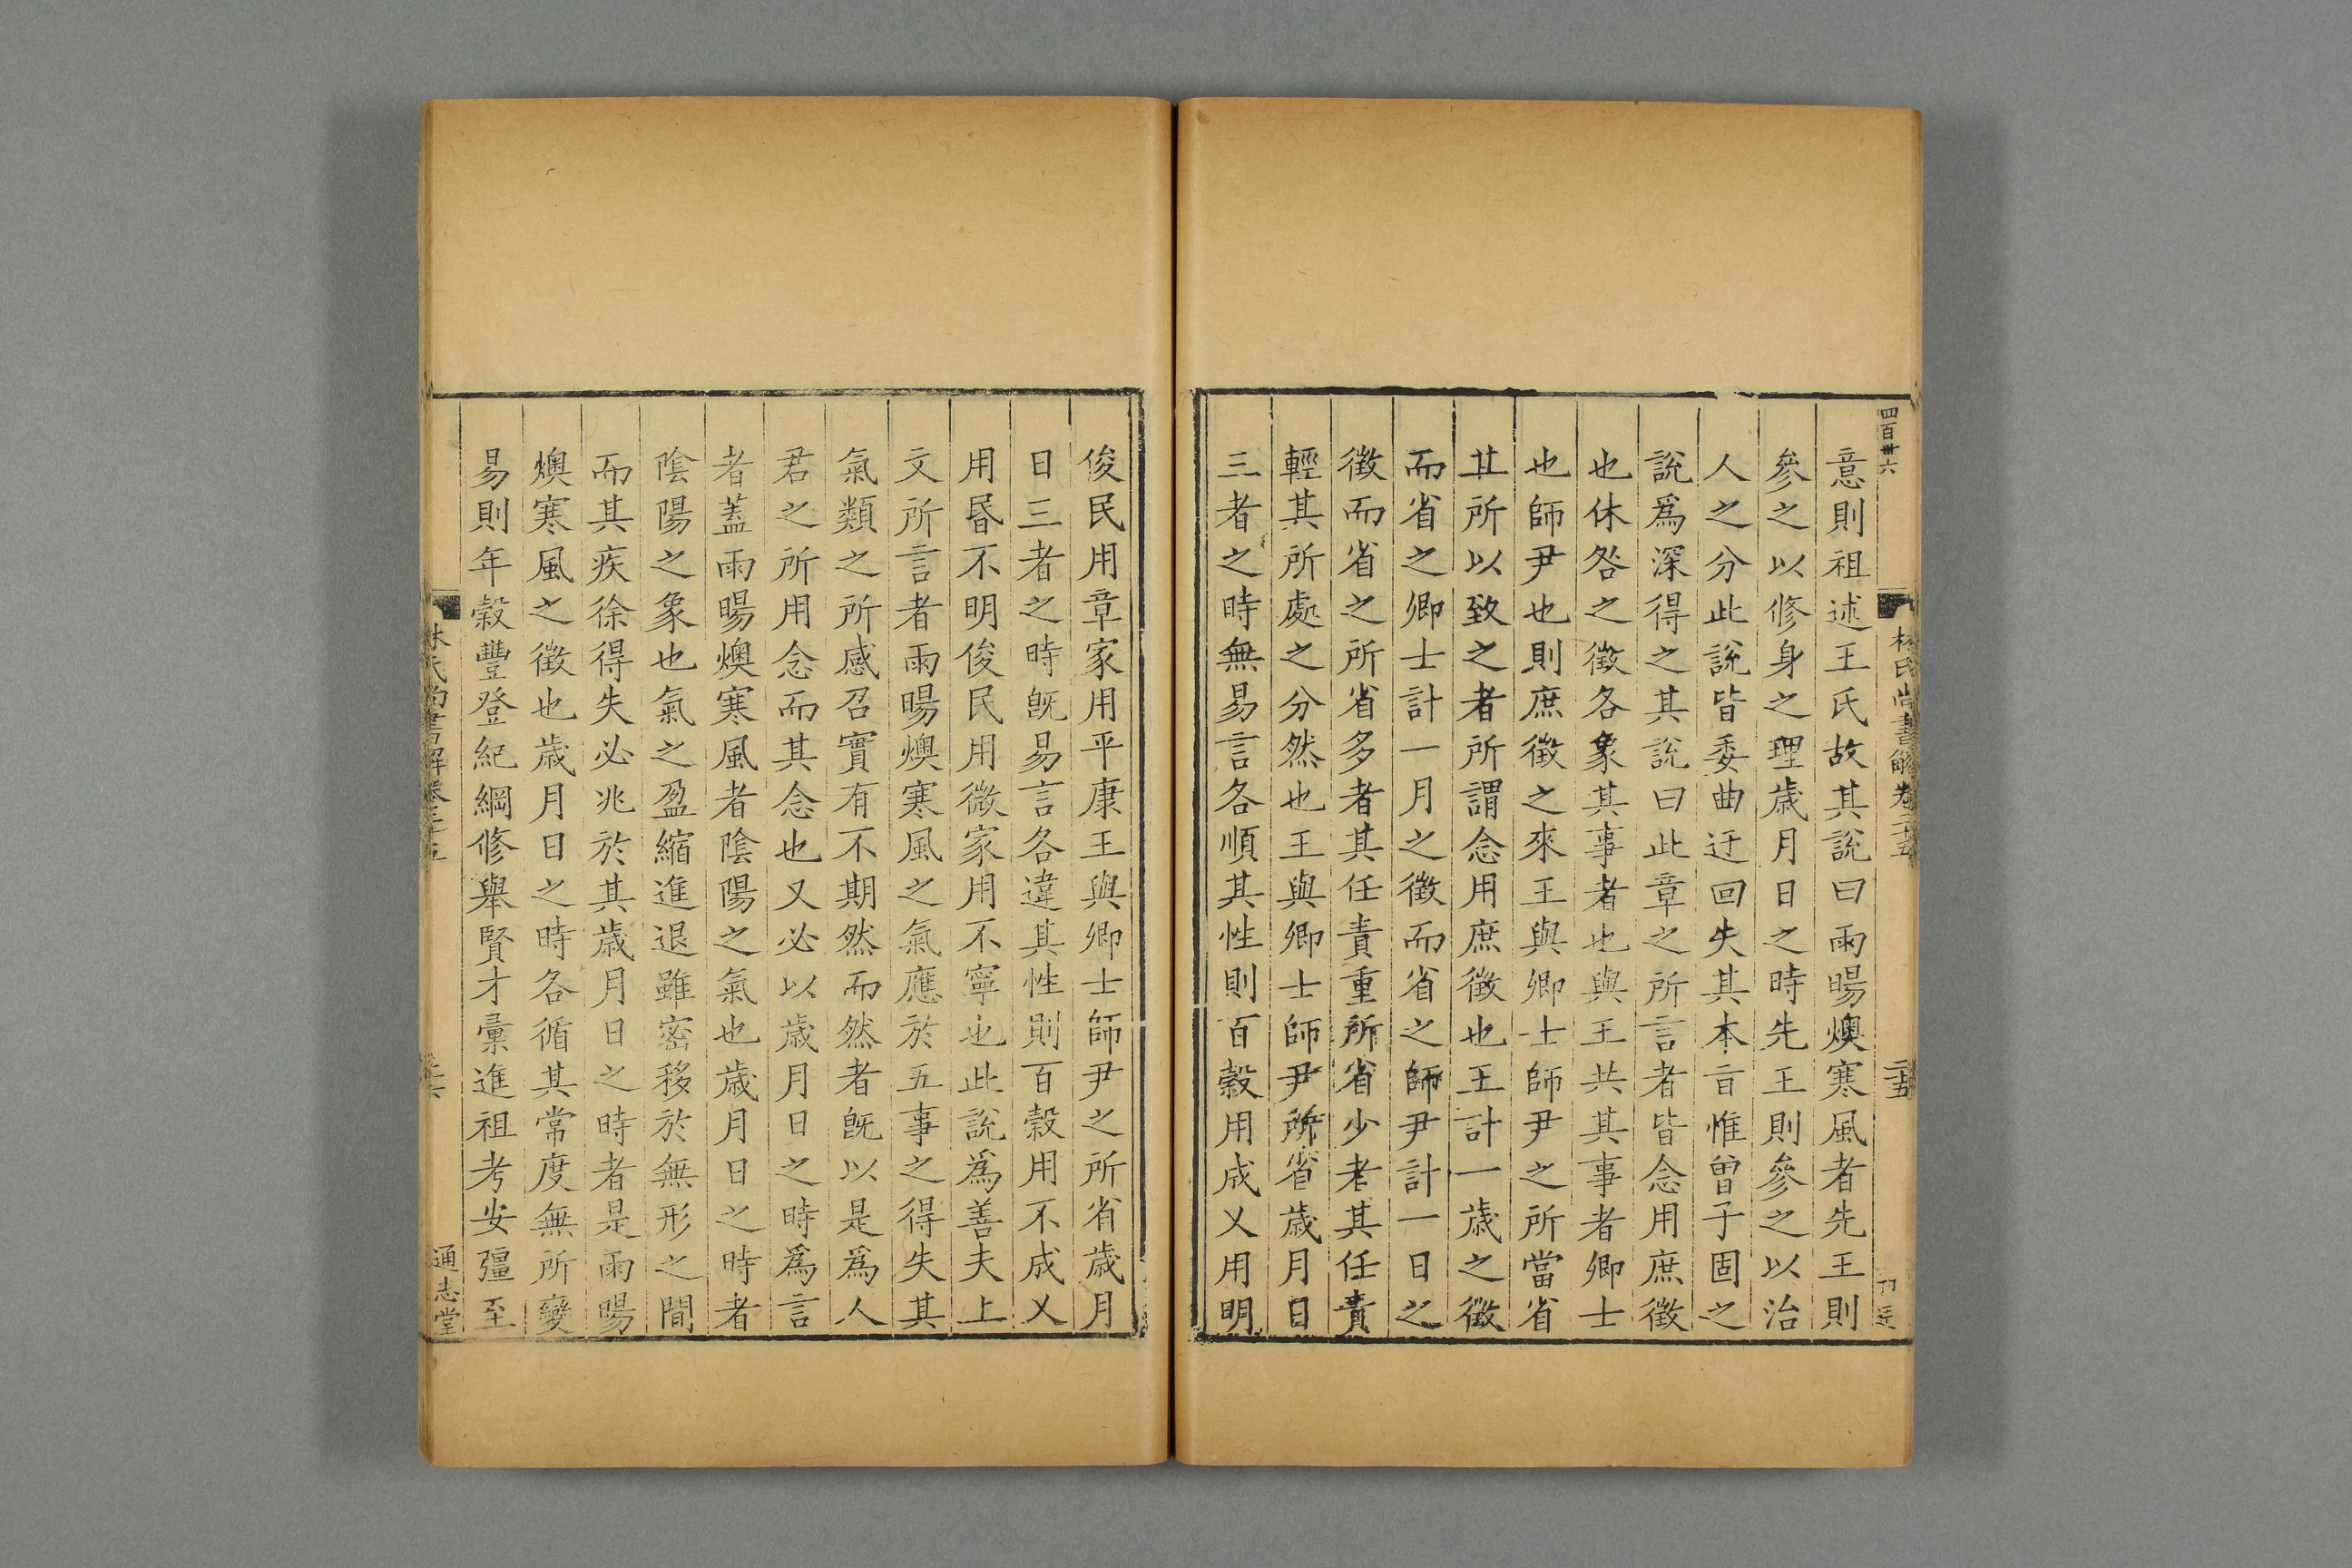 四百卅六
意則祖述王氏故其說曰雨暘燠寒風者先王則
參之以修身之理歲月日之時先王則參之以治
人之分此說皆委曲迂回失其本旨惟曾子固之
說爲深得之其說曰此章之所言者皆念用庶徵
也休咎之徵各象其事者也與王共其事者卿士
也師尹也則庶徵之來王與卿士師尹之所當省
其所以致之者所謂念用庶徵也王計一歲之徵
而省之卿士計一月之徵而省之師尹計一日之
徵而省之所省多者其任責重所省少者其任責
輕其所處之分然也王與卿士師尹所省歲月日
三者之時無易言各順其性則百穀用成乂用明
俊民用章家用平康王與卿士師尹之所省歲月
日三者之時旣易言各違其性則百穀用不成乂
用昬不明俊民用微家用不寧也此說爲善夫上
文所言者雨暘燠寒風之氣應於五事之得失其
氣類之所感召實有不期然而然者旣以是爲人
君之所用念而其念也又必以歲月日之時爲言
者蓋雨暘燠寒風者陰陽之氣也歲月日之時者
陰陽之象也氣之盈縮進退雖密移於無形之間
而其疾徐得失必兆於其歲月日之時者是雨暘
燠寒風之徵也歲月日之時各循其常度無所變
易則年穀豐登紀綱修舉賢才彙進祖考安彊至
林氏尚書解卷二十五
二十五
通志堂